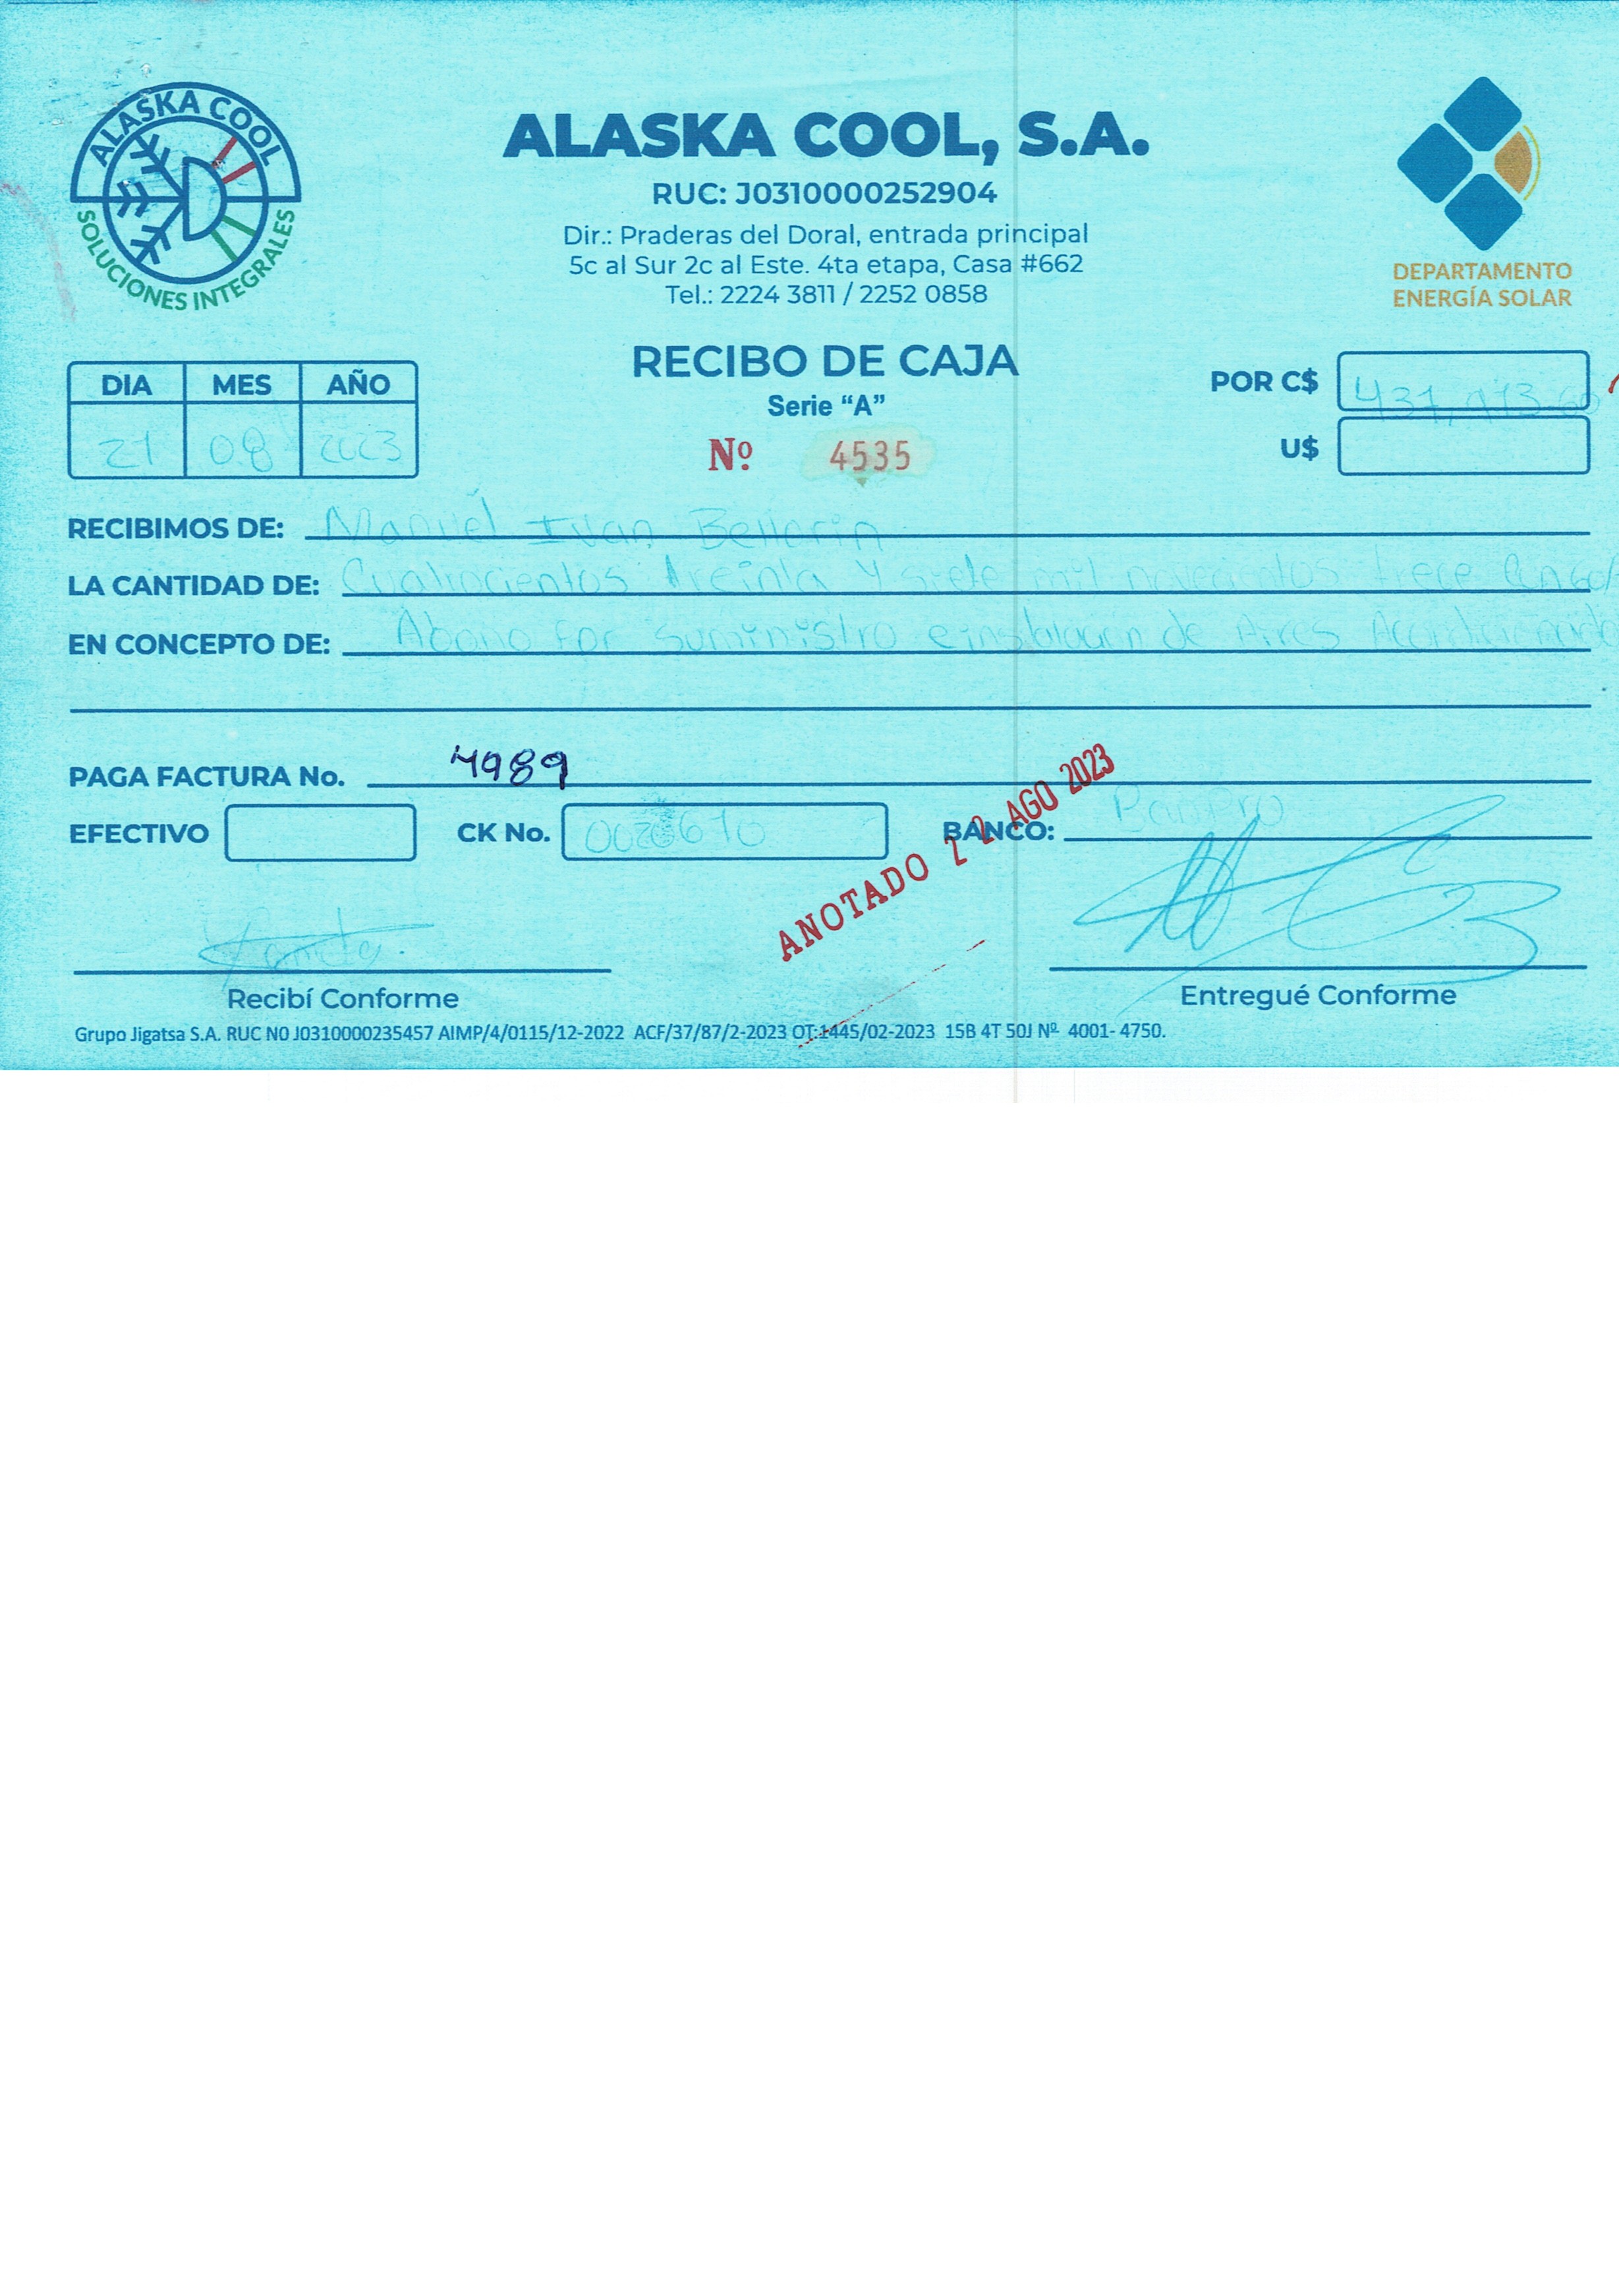 ALASKA COOL
SOLUCIONES INTEGRALES
ALASKA COOL, S.A.
RUC: J0310000252904
Dir.: Praderas del Doral, entrada principal
5c al Sur 2c al Este. 4ta etapa, Casa #662
Tel.: 2224 3811 / 2252 0858
DEPARTAMENTO
ENERGÍA SOLAR
RECIBO DE CAJA
Serie “A”
Nº 4535
DIA MES AÑO
21 08 2023
POR C$
U$
RECIBIMOS DE: Manuel Ivan
LA CANTIDAD DE: Cuatrocientos treinta y siete mil novecientos trece
EN CONCEPTO DE: Abono por suministro e instalación de Aires
PAGA FACTURA No. 4989
EFECTIVO CK No. BANCO: Banpro
ANOTADO 22 AGO 2023
Recibí Conforme
Entregué Conforme
Grupo Jigatsa S.A. RUC N0 J0310000235457 AIMP/4/0115/12-2022 ACF/37/87/2-2023 OT:1445/02-2023 15B 4T 50J Nº 4001- 4750.